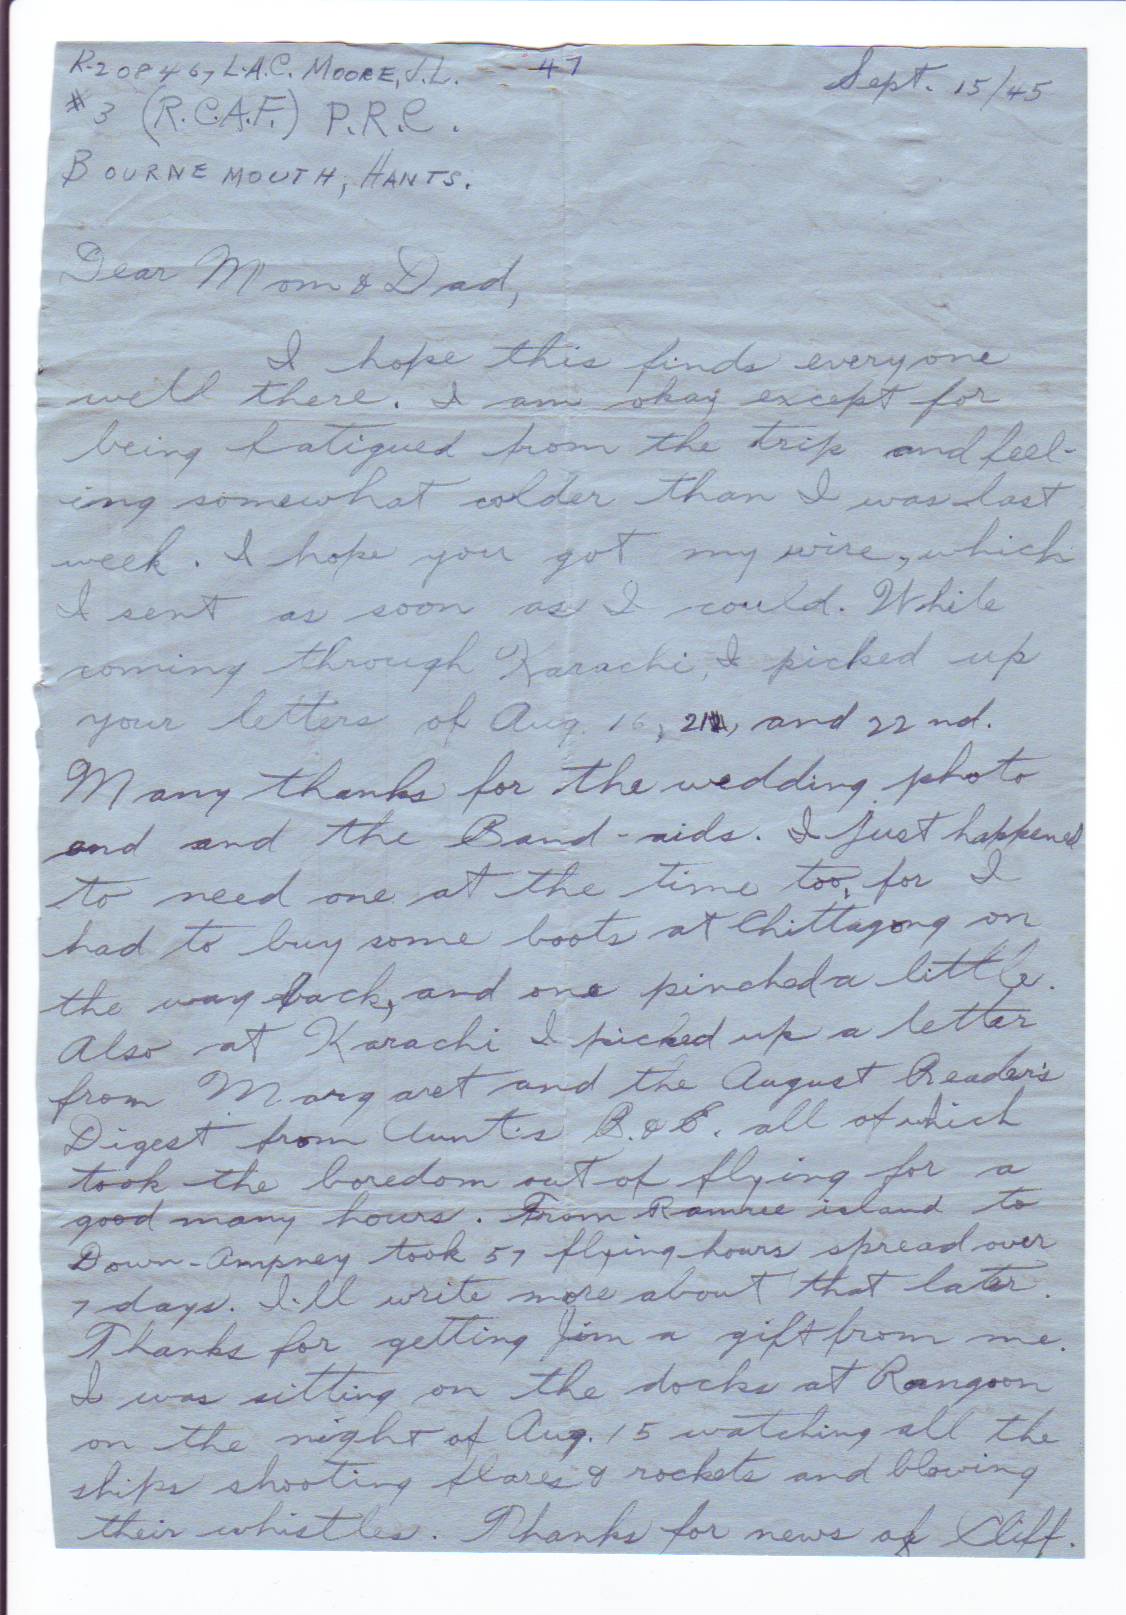 R-208467 L.A.C. MOORE, J.L. 47 Sept. 15/45
#3 (R.C.A.F.) P.R.C.
BOURNEMOUTH, HANTS.
Dear Mom & Dad,
I hope this finds everyone
well there. I am okay except for
being fatigued from the trip and feel-
ing somewhat colder than I was last
week. I hope you got my wire, which
I sent as soon as I could. While
coming through Karachi, I picked up
your letters of Aug. 16, 21, and 22nd.
Many thanks for the wedding photo
and and the Band-aids. I just happened
to need one at the time too, for I
had to buy some boots at Chittagong on
the way back, and one pinched a little.
Also at Karachi I picked up a letter
from Margaret and the August Reader's
Digest from Aunt's R. & E. all of which
took the boredom out of flying for a
good many hours. From Ramree island to
Down-Ampney took 57 flying hours spread over
7 days. I'll write more about that later.
Thanks for getting Jim a gift from me.
I was sitting on the docks at Rangoon
on the night of Aug. 15 watching all the
ships shooting flares & rockets and blowing
their whistles. Thanks for news of Cliff.